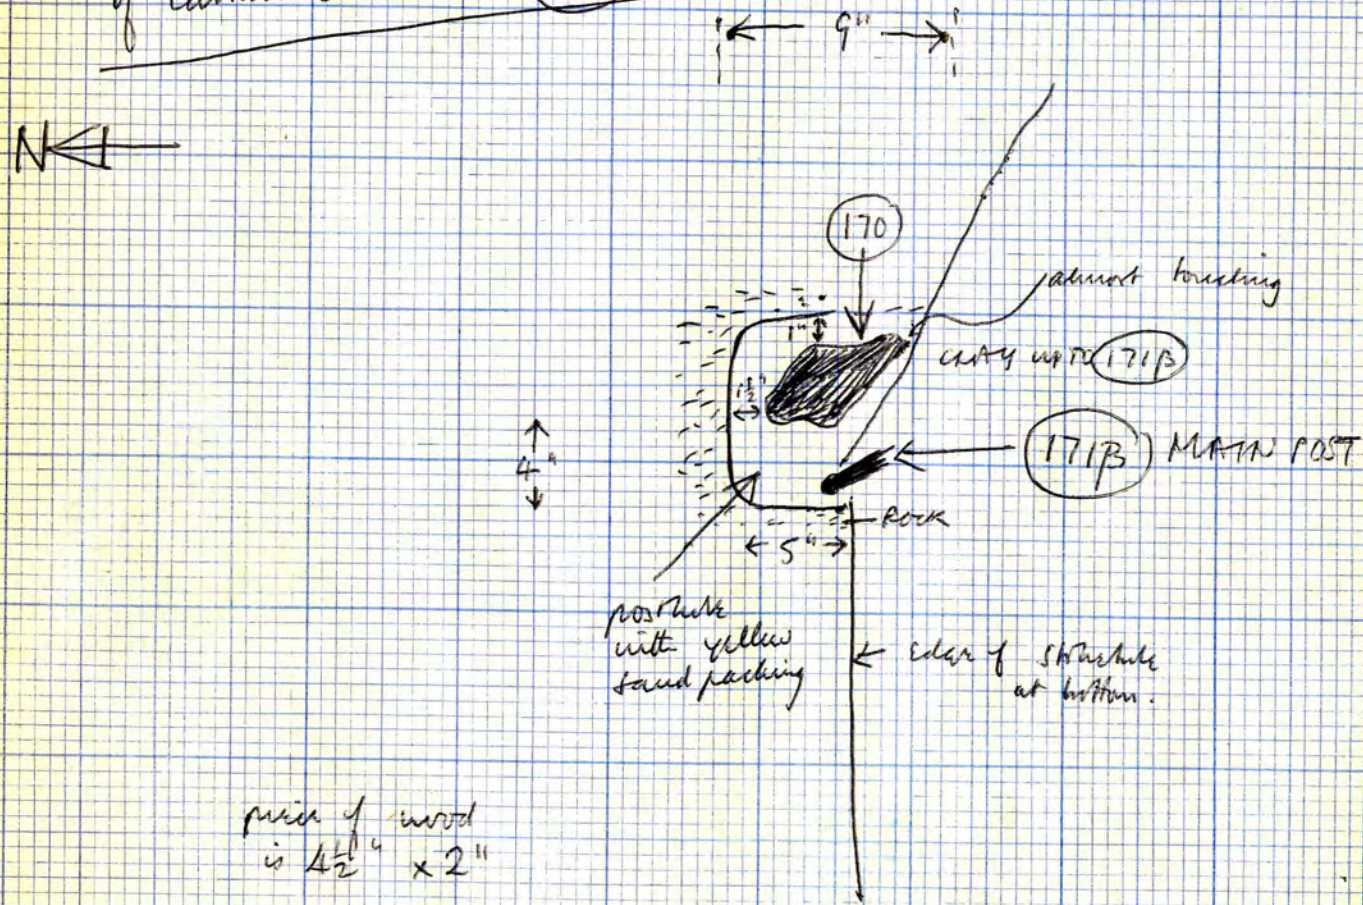 of
9"
N
170
almost touching
1"
CLAY UP TO 171β
1½"
171β MAIN POST
4"
ROCK
5"
posthole
with yellow
sand packing
edge of stakehole
at bottom.
piece of wood
is 4½" x 2"